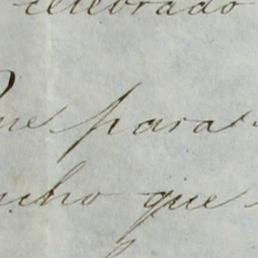 celebrado
Que para
ucho que